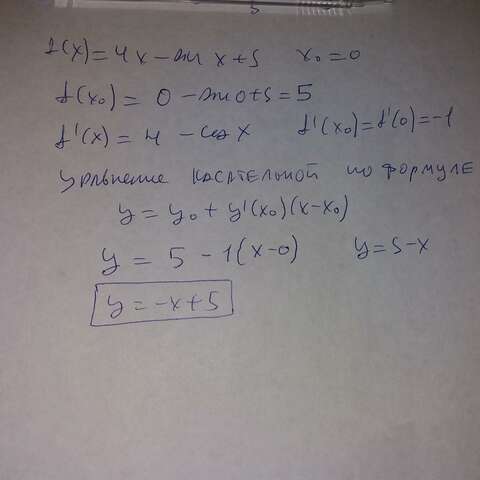 f(x) = 4x - sin x + 5 x₀ = 0
f(x₀) = 0 - sin 0 + 5 = 5
f'(x) = 4 - cos x f'(x₀) = f'(0) = -1
Уравнение касательной по формуле
y = y₀ + y'(x₀)(x - x₀)
y = 5 - 1(x - 0) y = 5 - x
y = -x + 5